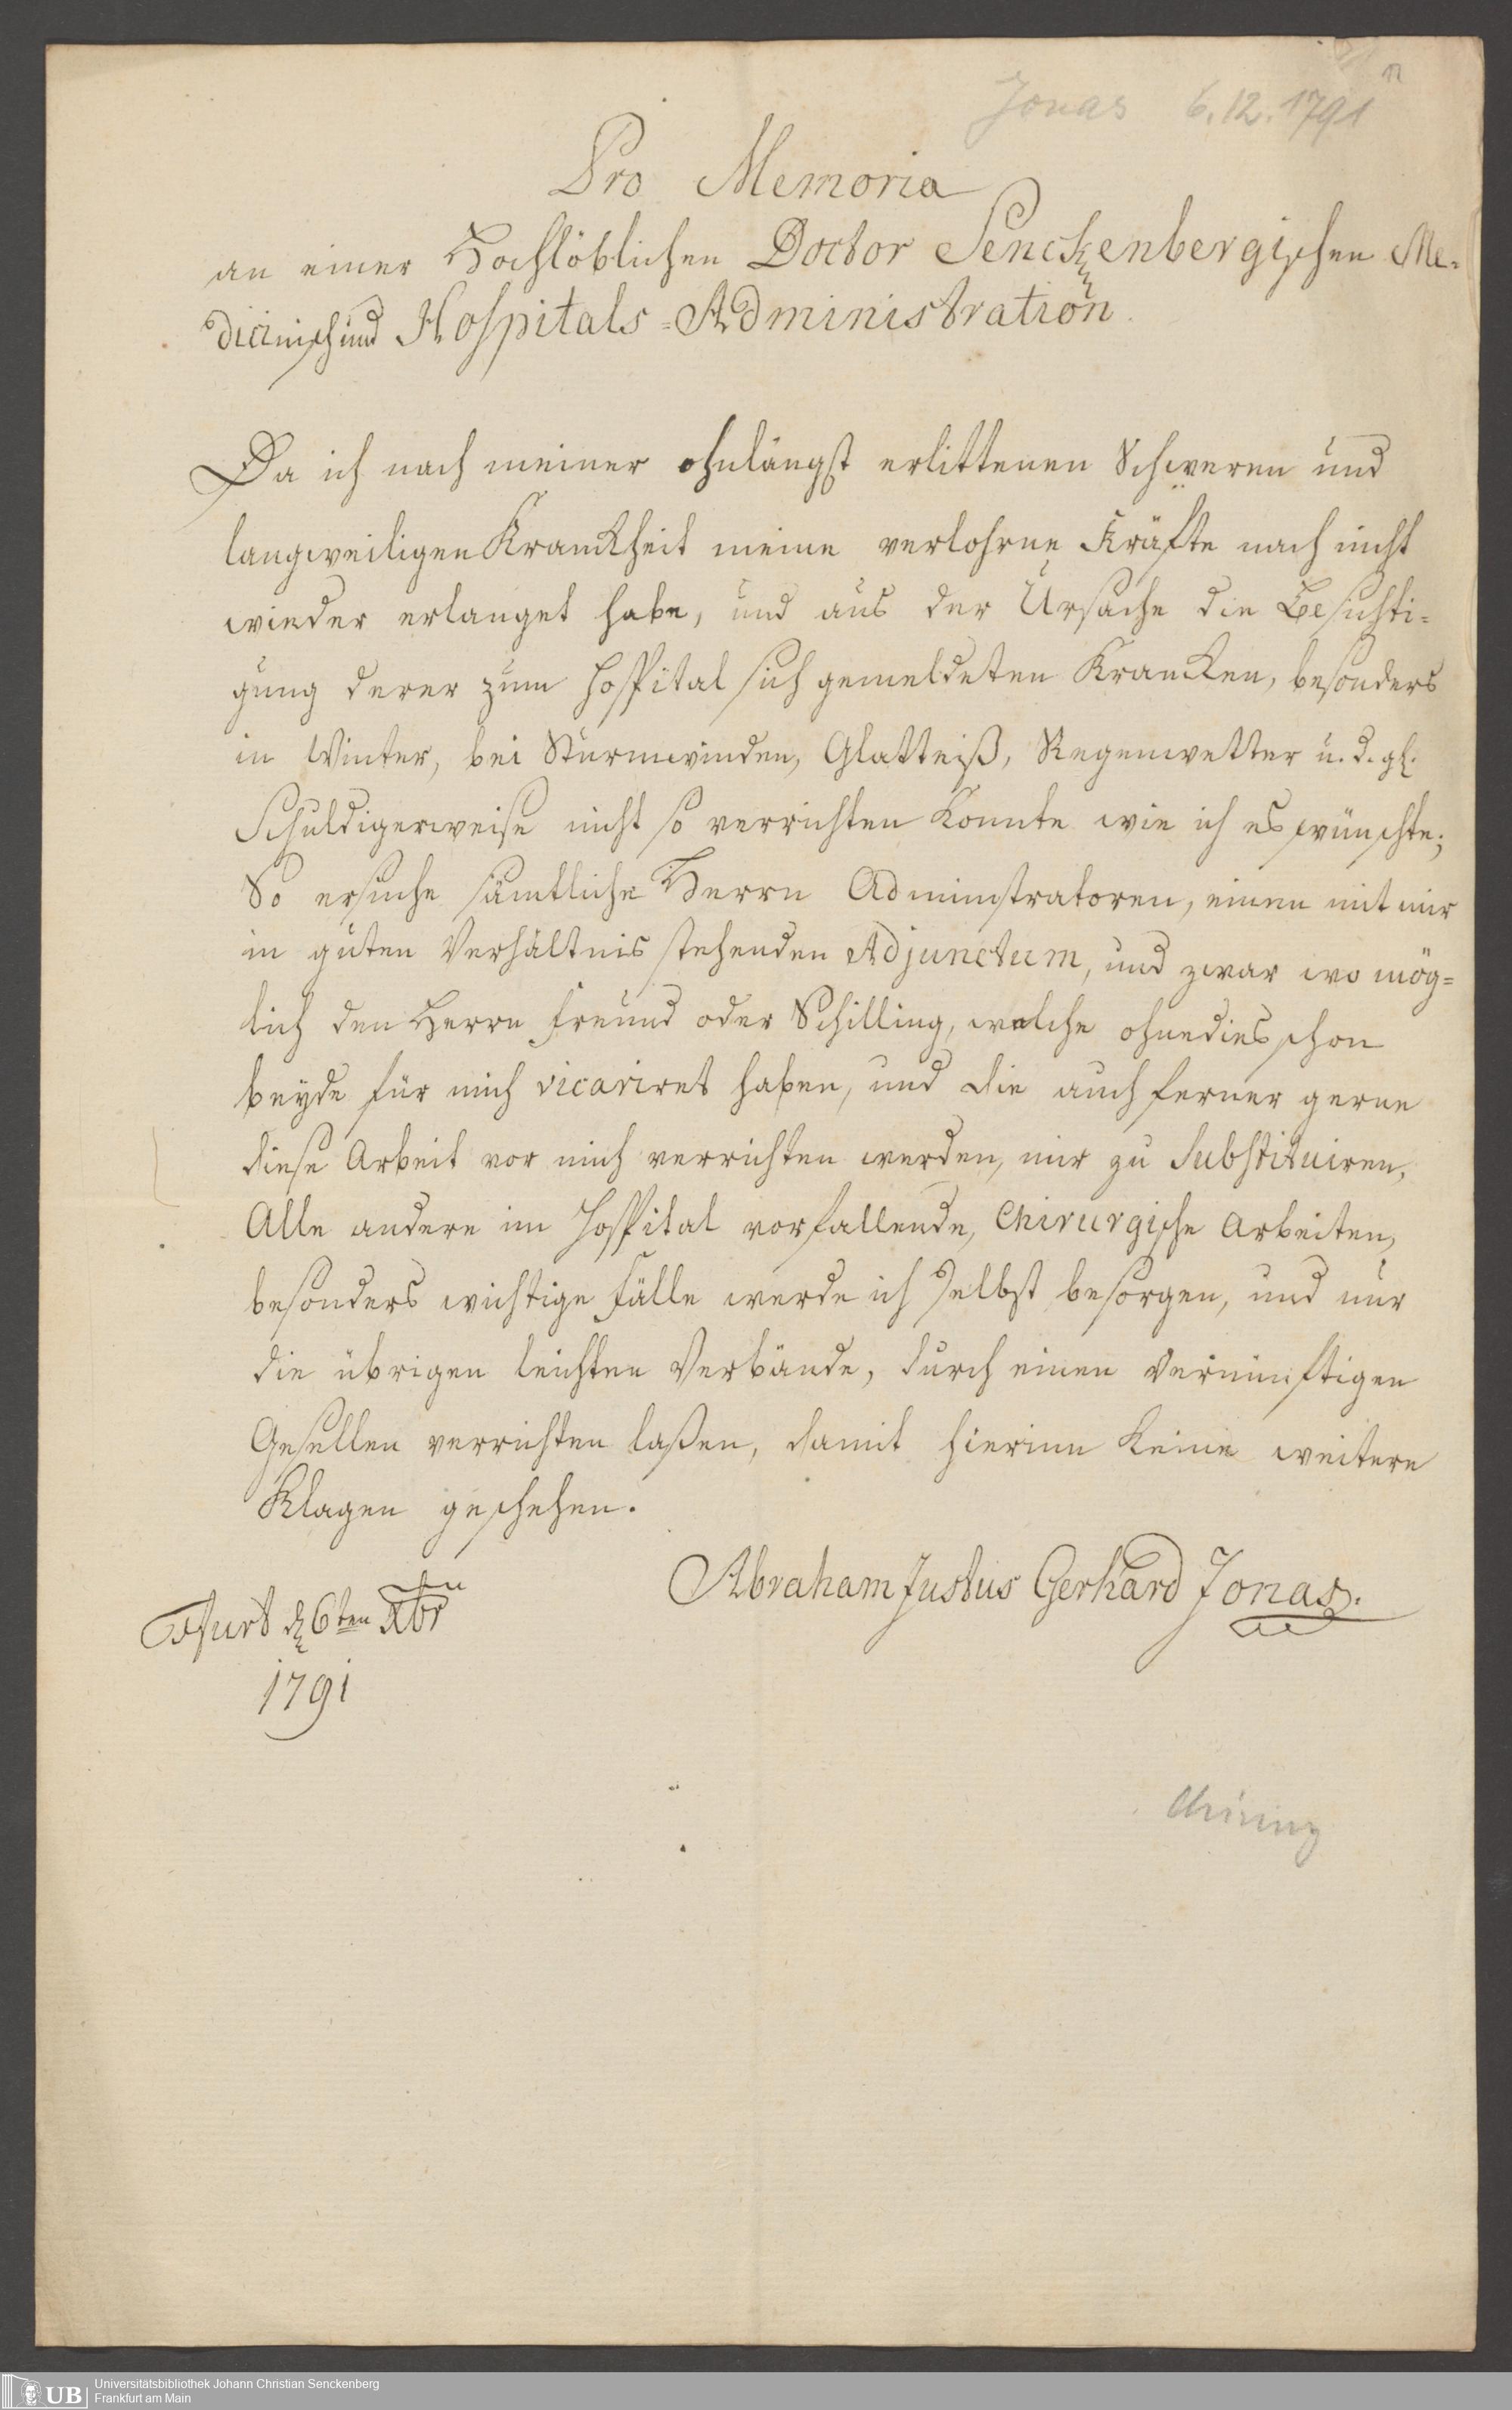 Jonas 6.12.1791
Pro Memoria
an einer Hochlöblichen Doctor Senckenbergischen Me-
dicinisch und Hospitals-Administration.
Da ich nach meiner ohnlängst erlittenen Schweren und
langweiligen Kranckheit meine verlohrne Kräfte noch nicht
wieder erlanget habe, und aus der Ursache die Besichti-
gung derer zum Hospital sich gemeldeten Krancken, besonders
in Winter, bei Sturmwinden, Glatteiß, Regenwetter u. d. gl.
Schuldigerweise nicht so verrichten konnte wie ich es wünschte;
So ersuche sämtliche Herrn Administratoren, einen mit mir
in guten Verhältnis stehenden Adjunctum, und zwar wo mög-
lich den Herrn Freund oder Schilling, welche ohnedies schon
beyde für mich vicariret haben, und die auch ferner gerne
diese Arbeit vor mich verrichten werden, mir zu Substituiren,
Alle andere im Hospital vorfallende, Chirurgische Arbeiten,
besonders wichtige Fälle werde ich Selbst besorgen, und nur
die übrigen leichten Verbände, durch einen vernünftigen
Gesellen verrichten laßen, damit hierinn keine weitere
Klagen geschehen.
Abraham Justus Gerhard Jonas.
Ffurt d 6ten Xbr
1791
Chirurg
UB Universitätsbibliothek Johann Christian Senckenberg
Frankfurt am Main